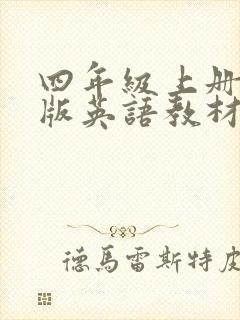 四年級上册
版英語教材
德馬雷斯特皮